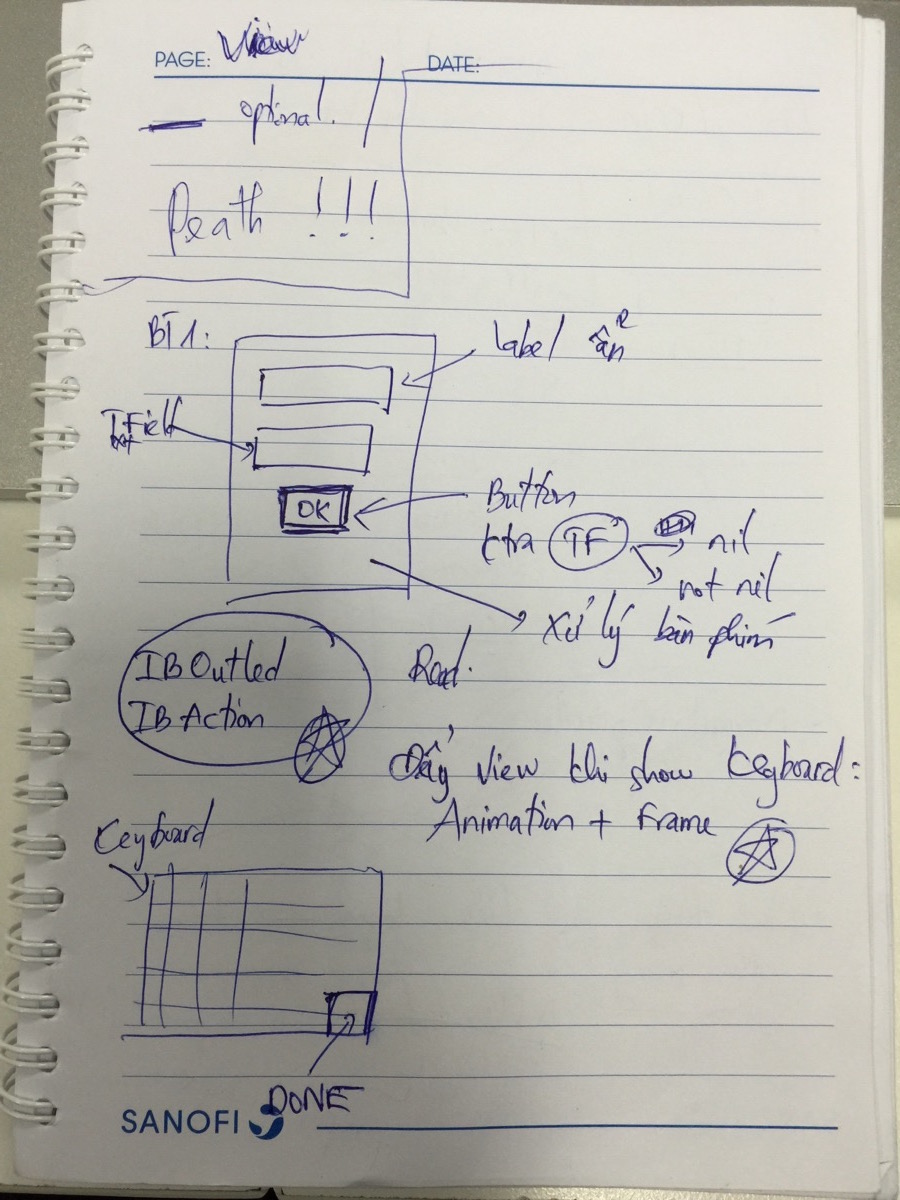 PAGE: View
DATE:
optional.
Death !!!
BT1:
Label ẩn
TField
Button
OK
ktra TF nil
not nil
Xử lý bàn phím
IB Outled
IB Action
Read.
Đẩy view khi show keyboard:
Animation + Frame
Keyboard
DONE
SANOFI